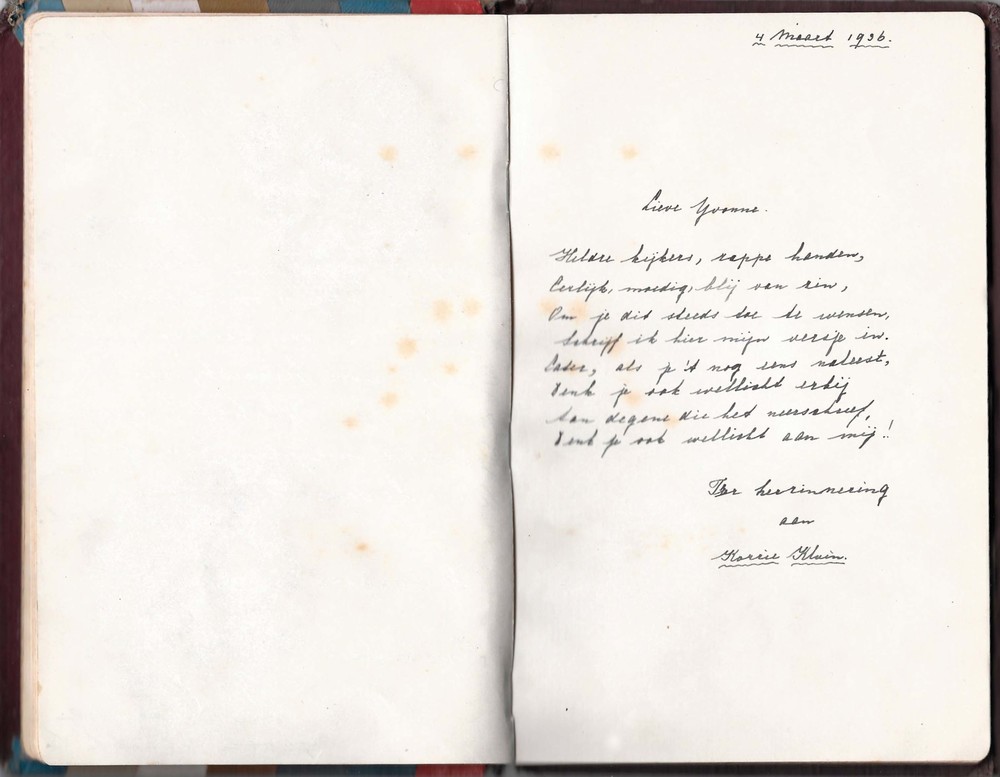 4 Maart 1936.
Lieve Yvonne.
Heldre kijkers, rappe handen,
Eerlijk, moedig, blij van zin,
Om je dit steeds toe te wensen,
Schrijf ik hier mijn versje in.
Later, als je 't nog eens naleest,
Denk je ook wellicht erbij
Aan degene die het neerschreef,
Denk je ook wellicht aan mij!!
Ter herrinnering
aan
Korrie Kluin.